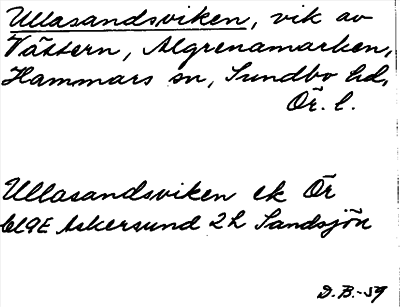 Ullasandsviken, vik av
Vättern, Algrenamarken,
Hammars sn, Sundbo hd,
Ör. l.
Ullasandsviken ek Ör
bl 9E Askersund 2h Sandsjön
D.B.-59